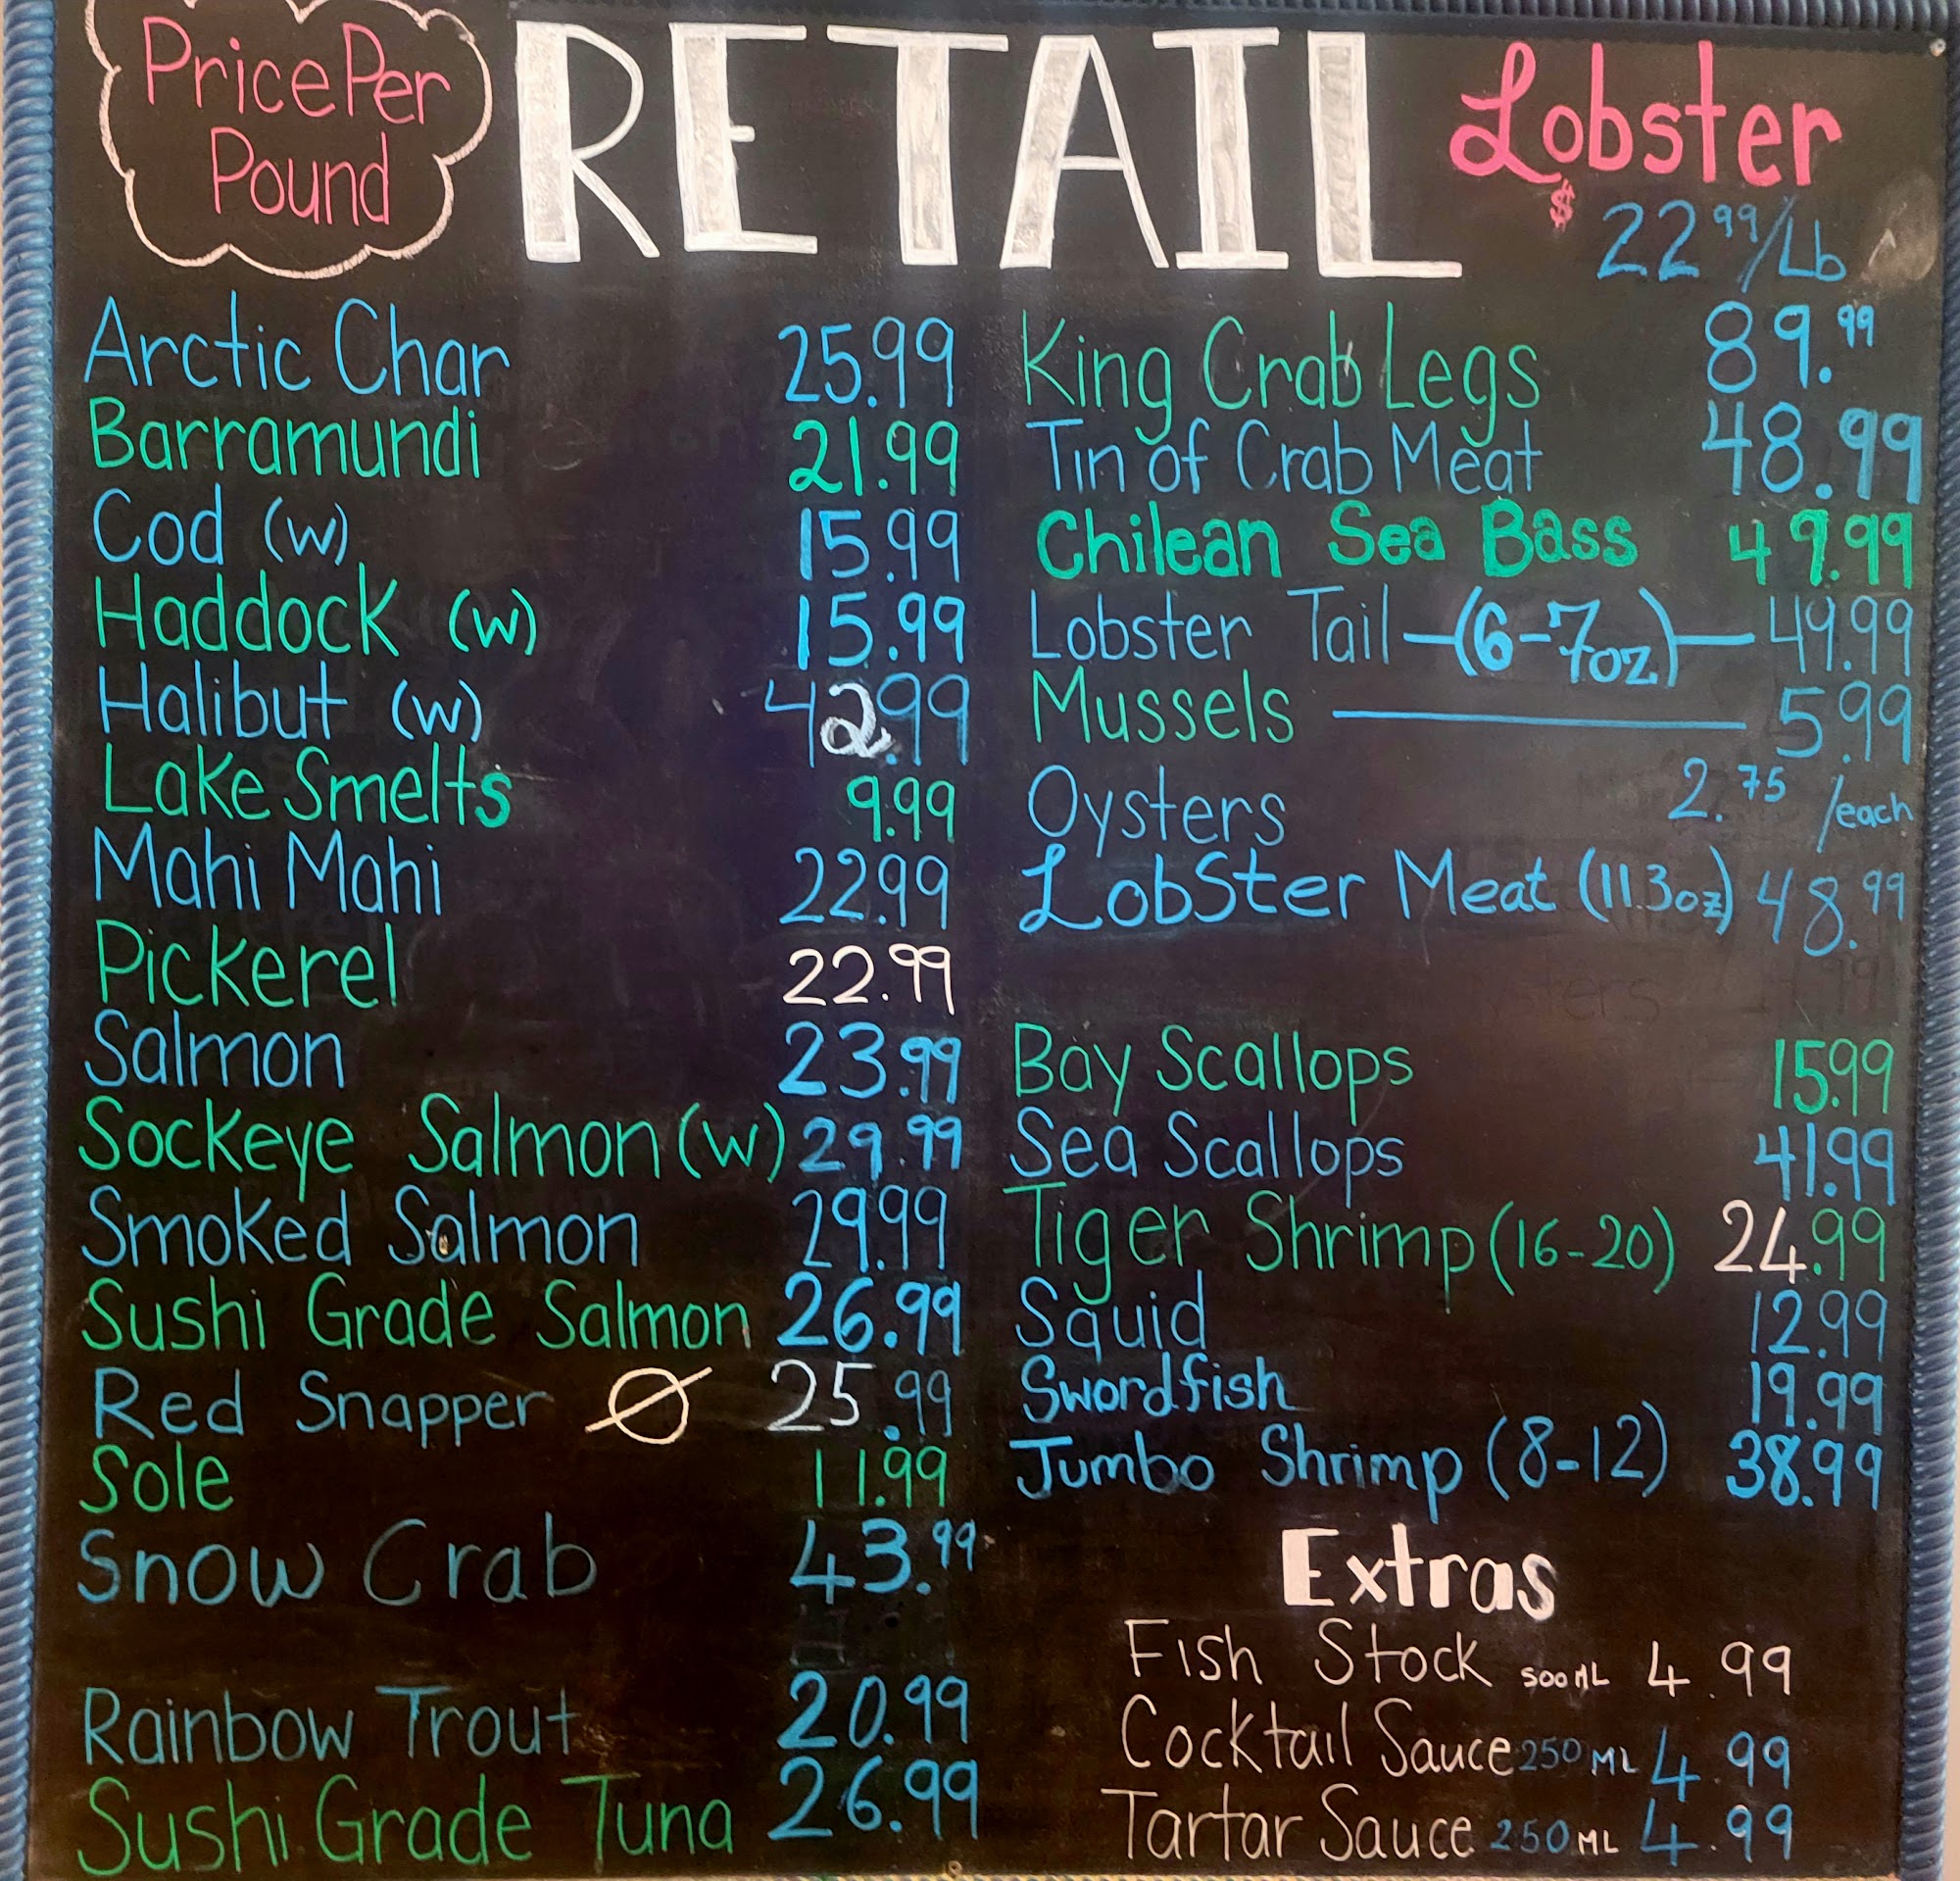 Price Per
Pound
RETAIL
Lobster
$ 22 99/Lb
Arctic Char 25.99
Barramundi 21.99
Cod (w) 15.99
Haddock (w) 15.99
Halibut (w) 42.99
Lake Smelts 9.99
Mahi Mahi 22.99
Pickerel 22.99
Salmon 23.99
Sockeye Salmon (w) 29.99
Smoked Salmon 29.99
Sushi Grade Salmon 26.99
Red Snapper Ø 25.99
Sole 11.99
Snow Crab 43.99
Rainbow Trout 20.99
Sushi Grade Tuna 26.99
King Crab Legs 89.99
Tin of Crab Meat 48.99
Chilean Sea Bass 49.99
Lobster Tail —(6-7oz.)— 49.99
Mussels — 5.99
Oysters 2.75 /each
Lobster Meat (11.3oz) 48.99
Bay Scallops 15.99
Sea Scallops 41.99
Tiger Shrimp (16-20) 24.99
Squid 12.99
Swordfish 19.99
Jumbo Shrimp (8-12) 38.99
Extras
Fish Stock 500ML 4.99
Cocktail Sauce 250ML 4.99
Tartar Sauce 250ML 4.99